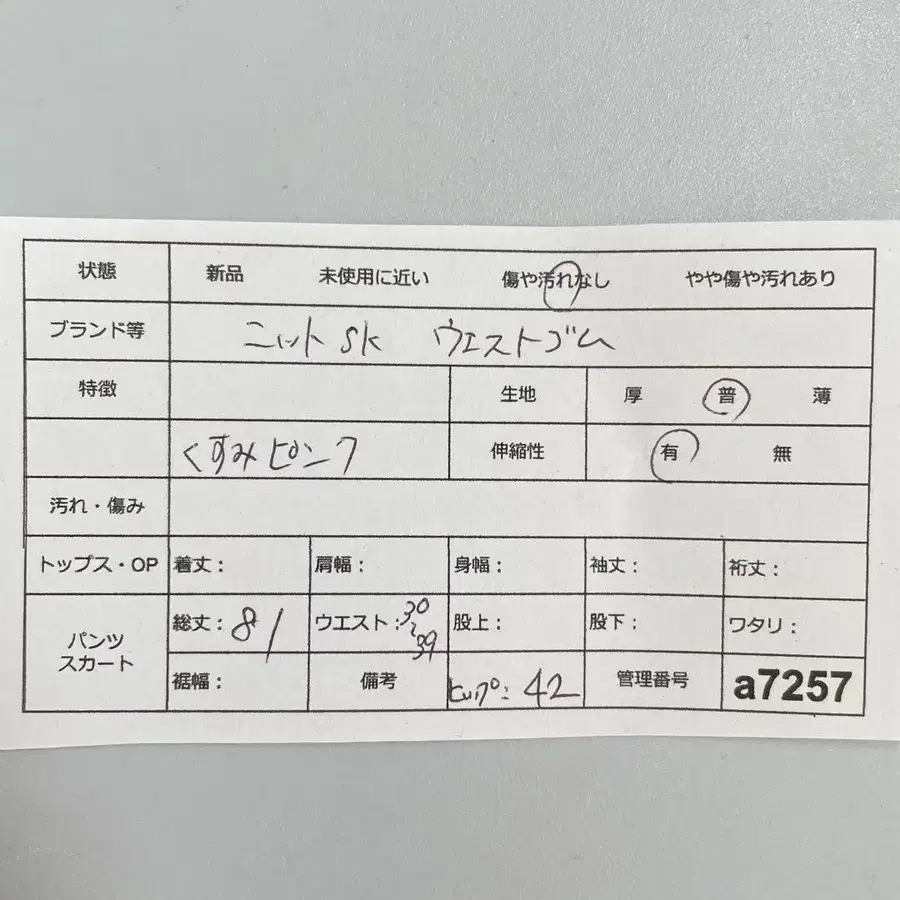 状態 新品 未使用に近い 傷や汚れなし やや傷や汚れあり
ブランド等 ニットSK ウエストゴム
特徴 生地 厚 普 薄
くすみピンク 伸縮性 有 無
汚れ・傷み
トップス・OP 着丈: 肩幅: 身幅: 袖丈: 裄丈:
パンツ
スカート
総丈:81 ウエスト:30~39 股上: 股下: ワタリ:
裾幅: 備考 ヒップ:42 管理番号 a7257